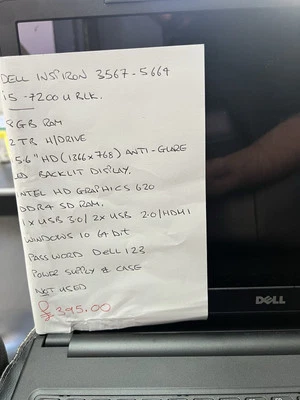 DELL INSPIRON 3567-5664
i5-7200U BLK.
8GB RAM
2TB H/DRIVE
15.6" HD (1366x768) ANTI-GLARE
LED BACKLIT DISPLAY.
INTEL HD GRAPHICS 620
DDR4 SD RAM.
1x USB 3.0/2x USB 2.0/HDMI
WINDOWS 10 64 bit
PASSWORD DELL123
POWER SUPPLY & CASE
NOT USED
£395.00
DELL